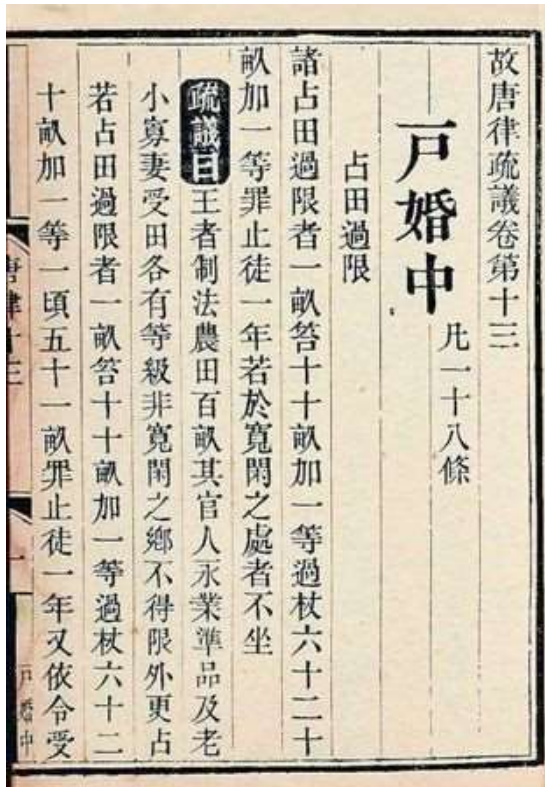 故唐律疏議卷第十三
戸婚中
凡一十八條
占田過限
諸占田過限者一畝笞十十畝加一等過杖六十二十
畝加一等罪止徒一年若於寬閑之處者不坐
疏議曰王者制法農田百畝其官人永業準品及老
小寡妻受田各有等級非寬閑之鄉不得限外更占
若占田過限者一畝笞十十畝加一等過杖六十二
十畝加一等一頃五十一畝罪止徒一年又依令受
唐律十三
一
戸婚中